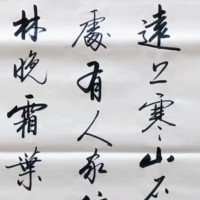 遠上寒山石
處有人家
林晚霜葉